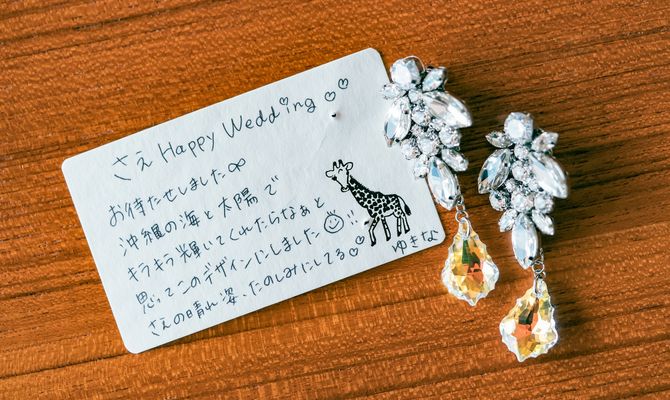 さえ Happy Wedding ♡♡
お待たせしました∞
沖縄の海と太陽で
キラキラ輝いてくれたらなぁと
思ってこのデザインにしました☺!!
さえの晴れ姿、たのしみにしてる♡
ゆきな